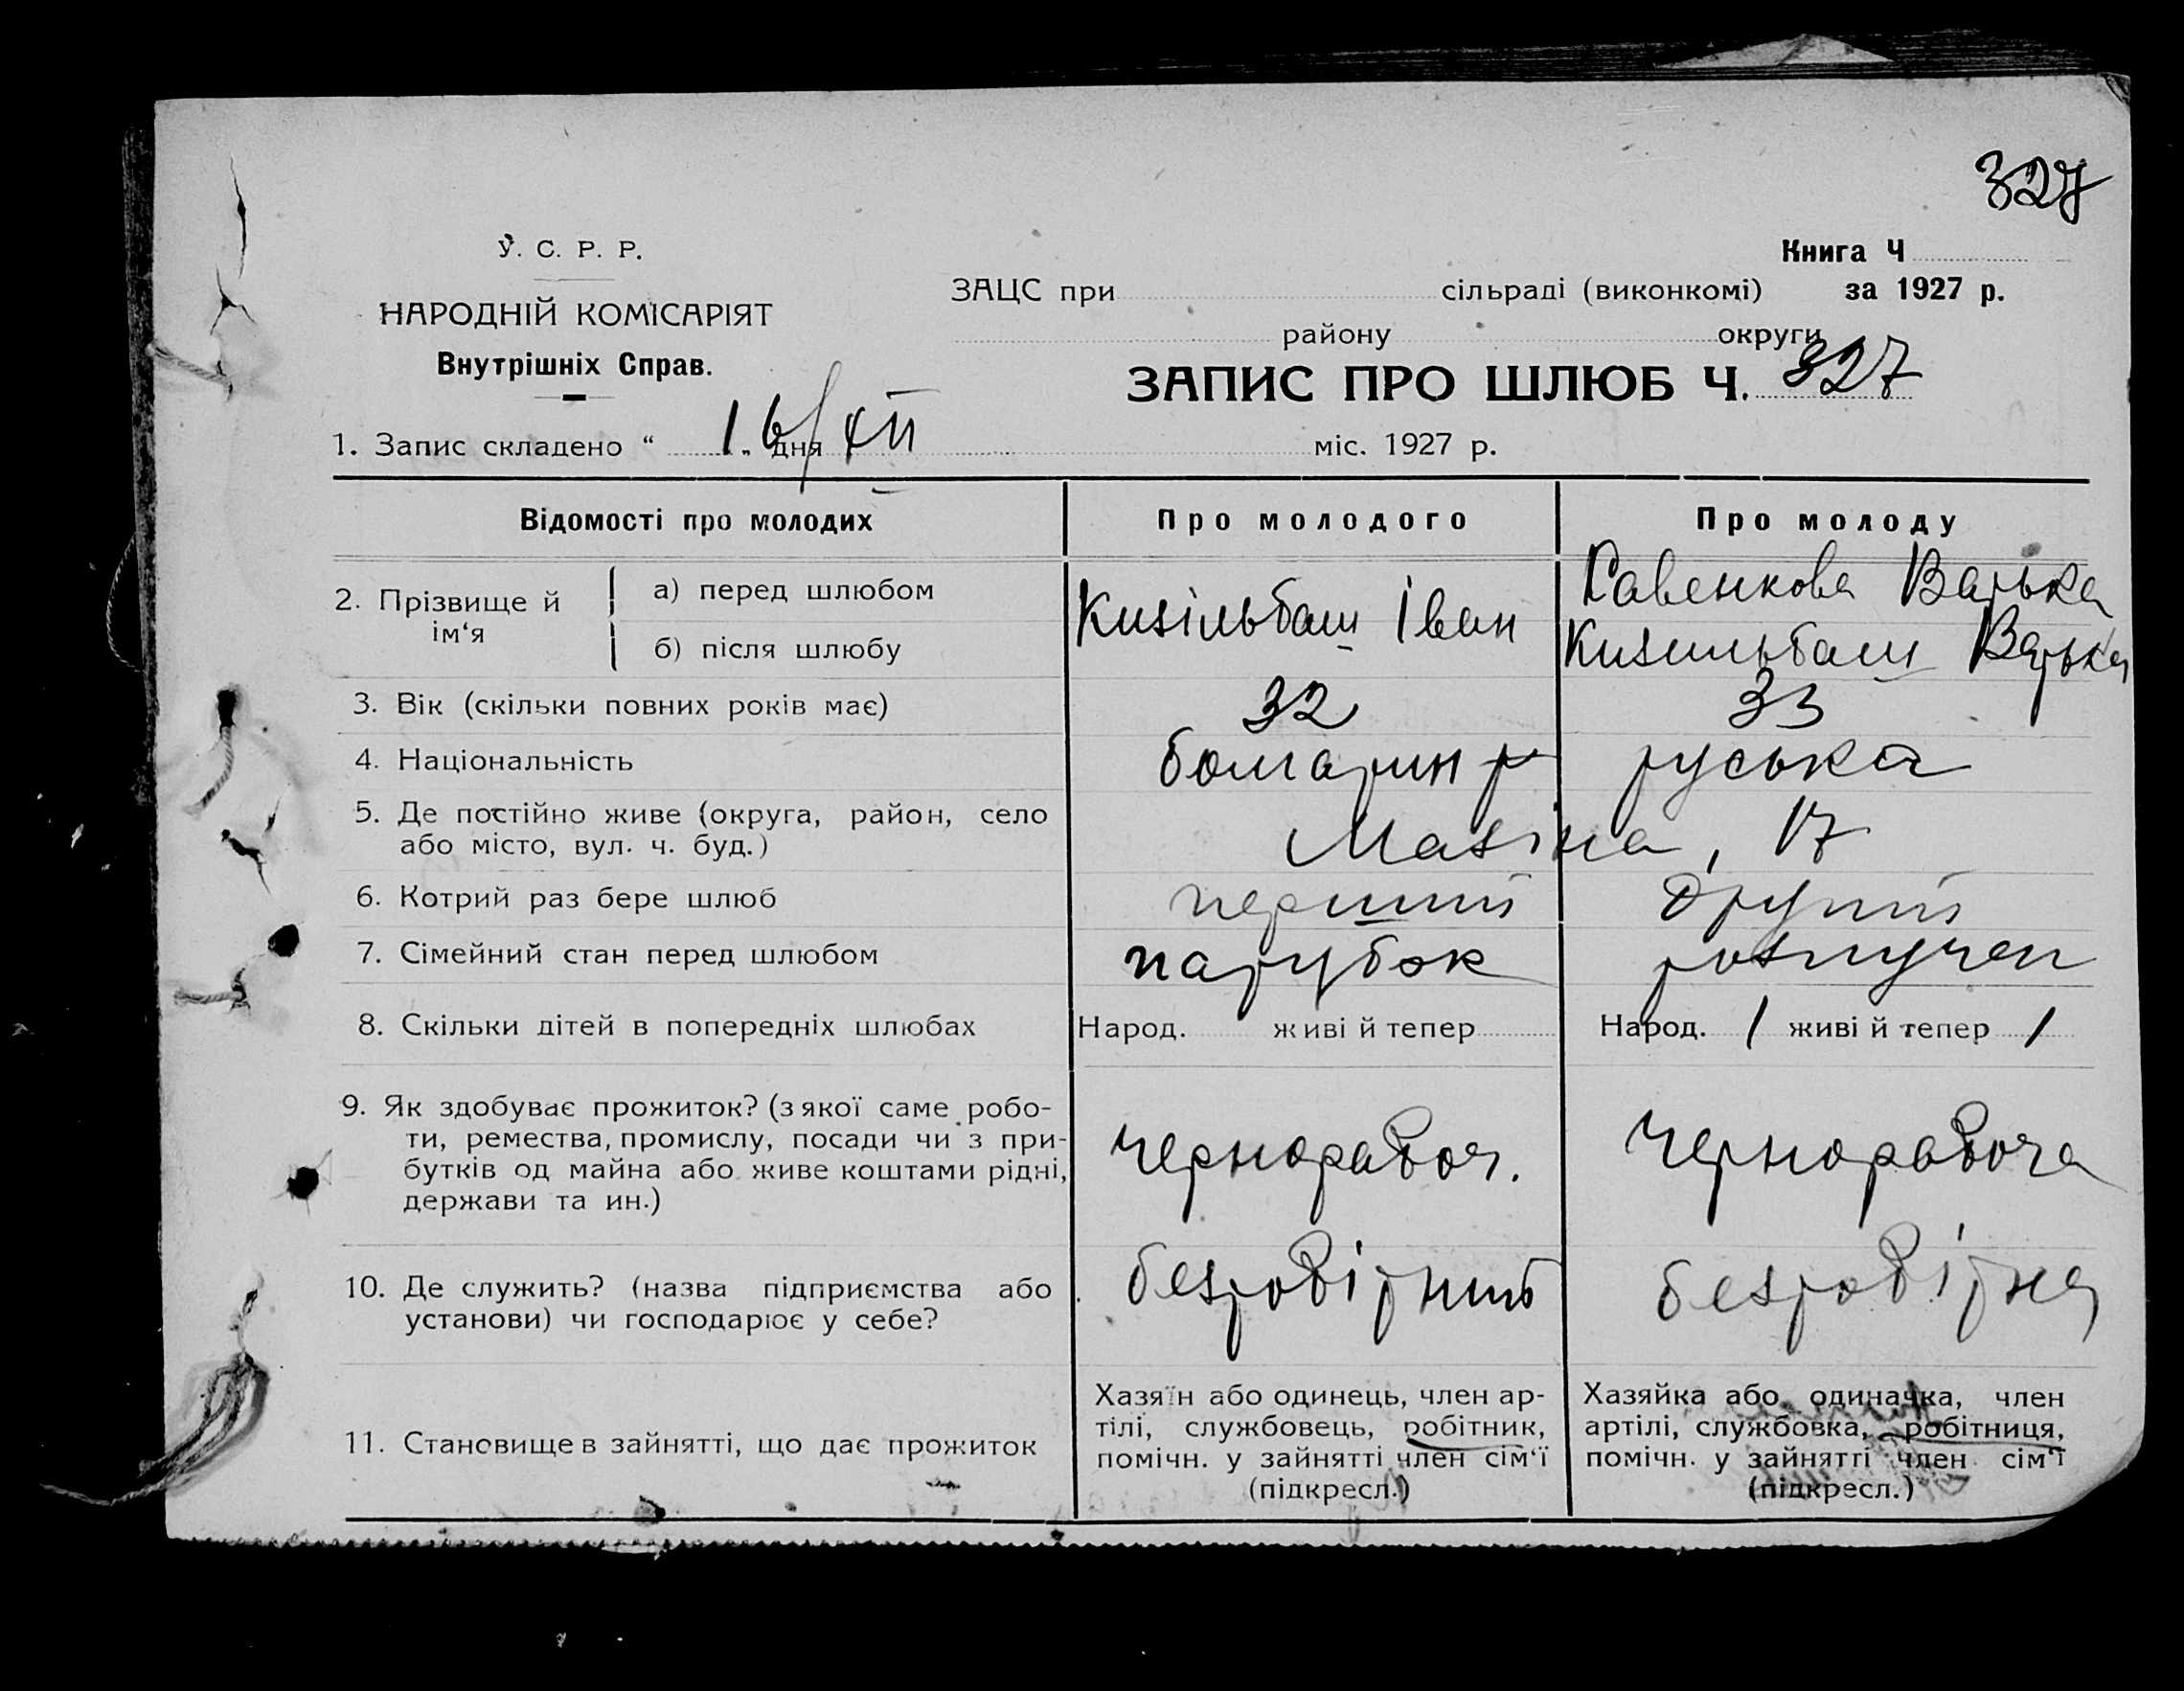 327
У. С. Р. Р.
НАРОДНІЙ КОМІСАРІЯТ
Внутрішніх Справ.
Книга Ч
ЗАЦС при сільраді (виконкомі) за 1927 р.
району округи
ЗАПИС ПРО ШЛЮБ Ч. 327
1. Запис складено “ 16/XII „ дня міс. 1927 р.
Відомості про молодих Про молодого Про молоду
2. Прізвище й ім‘я
а) перед шлюбом Кизільбаш Іван Савенкова Варька
б) після шлюбу Кизильбаш Варька
3. Вік (скільки повних років має) 32 33
4. Національність болгарин руська
5. Де постійно живе (округа, район, село
або місто, вул. ч. буд.) 17
6. Котрий раз бере шлюб перший другий
7. Сімейний стан перед шлюбом парубок розлучен
8. Скільки дітей в попередніх шлюбах Народ. живі й тепер Народ. 1 живі й тепер 1
9. Як здобуває прожиток? (з якої саме робо-
ти, ремества, промислу, посади чи з при-
бутків од майна або живе коштами рідні,
держави та ин.)
чернорабоч. чернорабоча
10. Де служить? (назва підприємства або
установи) чи господарює у себе?
безробітний безробітна
11. Становище в зайнятті, що дає прожиток
Хазяїн або одинець, член ар-
тілі, службовець, робітник,
помічн. у зайнятті член сім‘ї
(підкресл.)
Хазяйка або одиначка, член
артілі, службовка, робітниця,
помічн. у зайнятті член сім‘ї
(підкресл.)